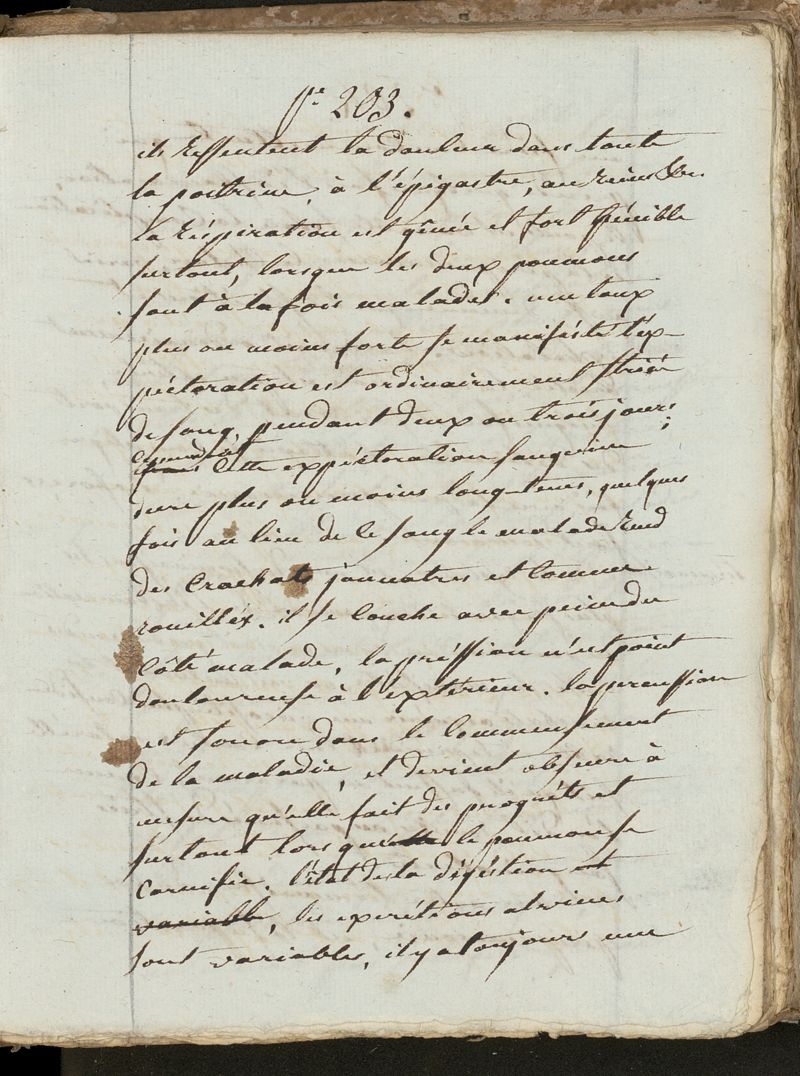 pe. 203.
ils ressentent la douleur dans toute
la poitrine, à l'épigastre, au reins &c.
la réspiration est gênée et fort pénible
surtout, lorsque les deux poumons
sont à la fois malades. une toux
plus ou moins forte se manifèste l'éx-
péctoration est ordinairement striée
de sang pendant deux ou trois jours;
cette expéctoration sanguine
dure plus ou moins long-tems, quelques
fois au lieu de ce sang le malade rend
des crachats jaunatres et comme
rouillés. il se couche avec peine du
côté malade, la préssion n'est point
douloureuse à l'éxtérieur. la percussion
est sonore dans le commensement
de la maladie, et devient obscure à
mesure qu'elle fait des progréts et
surtout lorsque le poumon se
carnifie. l'état de la digéstion et
variable, les expcrétions alvines
sont variables, il y a toujours une